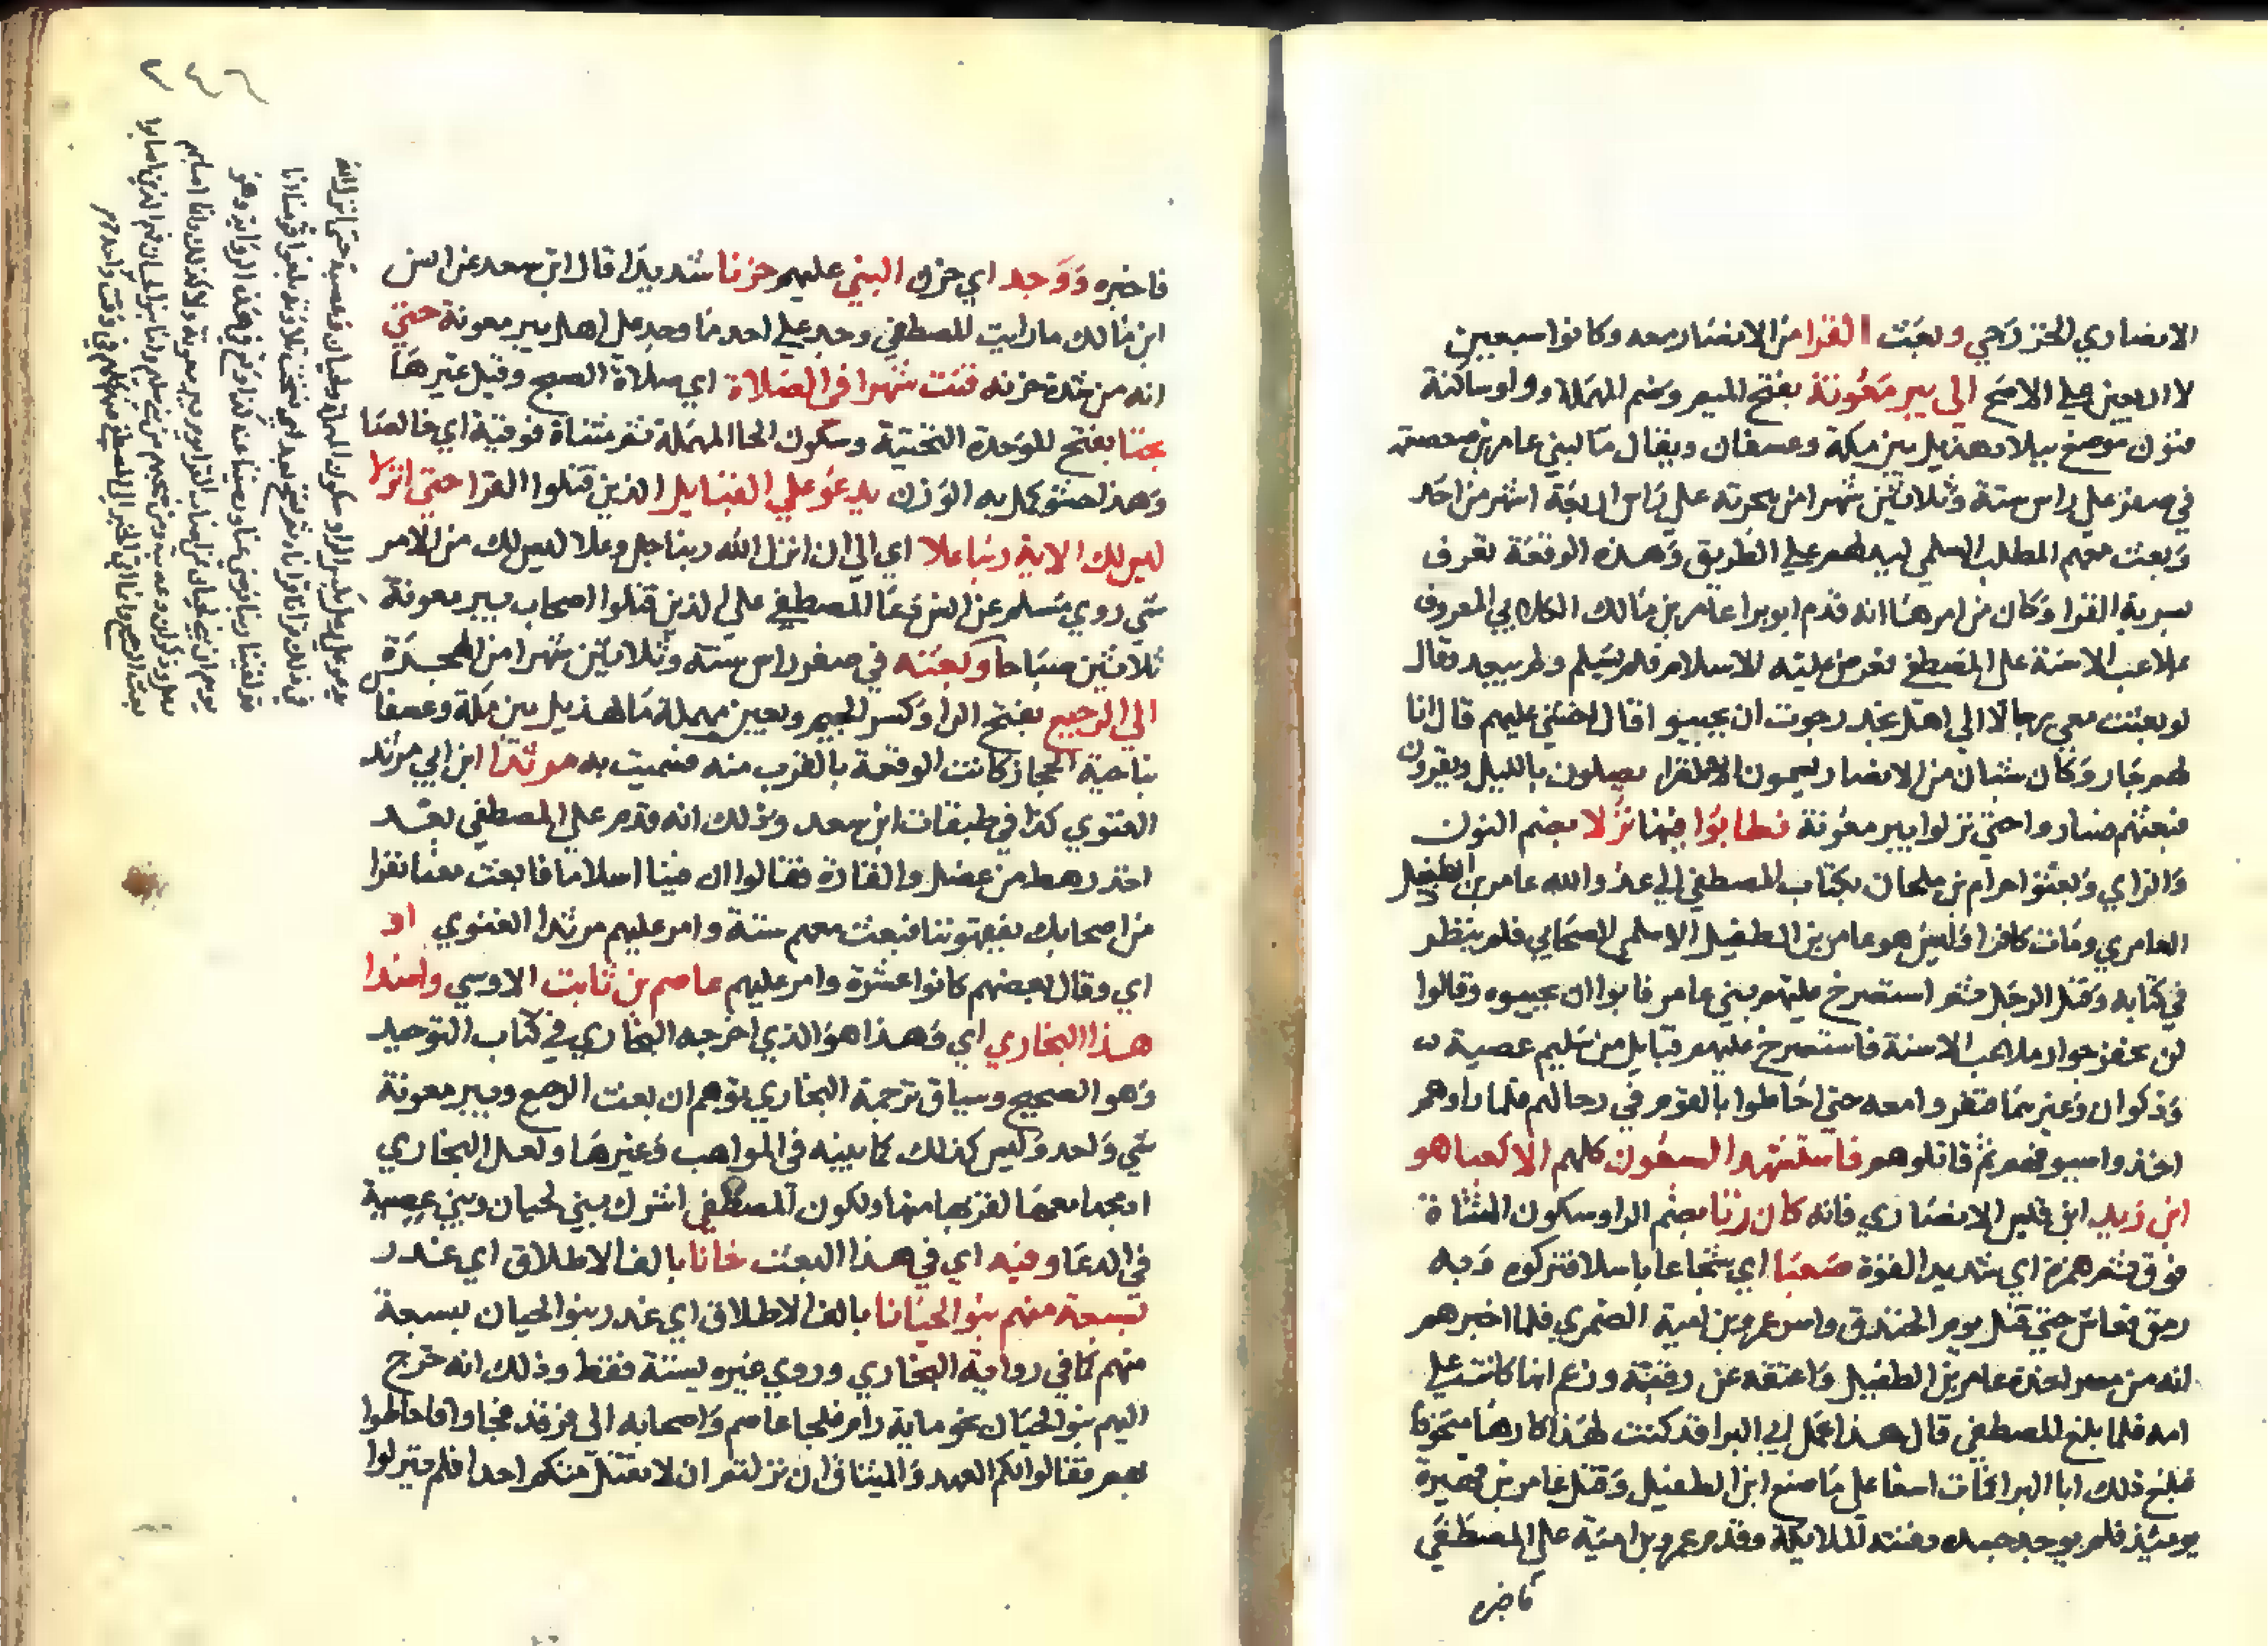 الانصاري الخزرجي وبعث القرا من الانصار معه وكانوا سبعين
لا اربعين على الاصح الى بير معونة بفتح الميم وضم المهملة وواو ساكنة
فنون موضع ببلاد هذيل بين مكة وعسفان ويقال ما لبني عامر بن صعصعة
في صفر على راس ستة وثلاثين شهرا من هجرته على راس اربعة اشهر من احد
وبعث معهم المطلب السلمي ليدلهم على الطريق وهذه الوقعة تعرف
بسرية القرا وكان من امرها انه قدم ابو برا عامر بن مالك الكلابي المعروف
بملاعب الاسنة على المصطفى فعرض عليه الاسلام فلم يسلم ولم يبعد وقال
لو بعثت معي رجالا الى اهل نجد رجوت ان يجيبوا قال اخشى عليهم قال انا
لهم جار وكان شبان من الانصار يسمون القرا يصلون بالليل ويقرون
فبعثهم فساروا حتى نزلوا بير معونة فطابوا فيها نزلا بضم النون
والزاي وبعثوا حرام بن ملحان بكتاب المصطفى الى عدو الله عامر بن الطفيل
العامري ومات كافرا وليس هو عامر بن الطفيل الاسلمي الصحابي فلم ينظر
في كتابه وقتل الرجل ثم استصرخ عليهم بني عامر فابوا ان يجيبوه وقالوا
لن نخفر جوار ملاعب الاسنة فاستصرخ عليهم قبايل من سليم عصية
وذكوان وغيرهما فنفروا معه حتى احاطوا بالقوم في رحالهم فلما راوهم
اخذوا سيوفهم ثم قاتلوهم فاستشهد السبعون كلهم الا كعبا هو
ابن زيد ابن قيس الانصاري فانه كان رثا بضم الرا وسكون المثناة
فوق ثم همزة اي شديد القوة صعبا اي شجاعا باسلا فتركوه وبه
رمق فعاش حتى قتل يوم الخندق واسر عمرو بن امية الضمري فلما اخبرهم
انه من مضر اخذه عامر بن الطفيل واعتقه عن رقبة وزعم انها كانت على
امه فلما بلغ المصطفى قال هذا عمل ابي البرا قد كنت لهذا كارها متخوفا
فبلغ ذلك ابا البرا فمات اسفا على ما صنع ابن الطفيل وقتل عامر بن فهيرة
يوميذ فلم يوجد جسده دفنته الملايكة وقدم عمرو بن امية على المصطفى
فاخبره
٢٤٦
فاخبره ووجد اي حزن النبي عليهم حزنا شديدا قال ابن سعد عن انس
ابن مالك ما رايت المصطفى وجد على احد ما وجد على اهل بير معونة حتى
انه من شدة حزنه قنت شهرا في الصلاة اي صلاة الصبح وقيل غيرها
بحتا بفتح الموحدة التحتية وسكون الحا المهملة ثم مثناة فوقية اي خالصا
وهذا حشو كمل به الوزن يدعو على القبايل الذين قتلوا القرا حتى انزلا
ليس لك الاية ربنا علا اي الى ان انزل الله ربنا جل وعلا ليس لك من الامر
شي روى مسلم عن انس دعا المصطفى على الذين قتلوا اصحاب بير معونة
ثلاثين صباحا وبعثه في صفر راس ستة وثلاثين شهرا من الهجرة
الى الرجيع بفتح الرا وكسر الجيم وبعين مهملة ما لهذيل بين مكة وعسفان
بناحية الحجاز كانت الوقعة بالقرب منه فسميت به مرثدا ابن ابي مرثد
الغنوي كذا في طبقات ابن سعد وذلك انه قدم على المصطفى بعد
احد رهط من عضل والقارة فقالوا ان فينا اسلاما فابعث معنا نفرا
من اصحابك يفقهوننا فبعث معهم ستة وامر عليهم مرثدا الغنوي او
اي وقال بعضهم كانوا عشرة وامر عليهم عاصم بن ثابت الاوسي واسندا
هذا البخاري اي وهذا هو الذي اخرجه البخاري في كتاب التوحيد
وهو الصحيح وسياق ترجمة البخاري يوهم ان بعث الرجيع وبير معونة
شي واحد وليس كذلك كما بينه في المواهب وغيرها ولعل البخاري
ادمجها معها لقربها منها ولكون المصطفى اشرك بين بني لحيان وبني عصية
في الدعا وفيه اي في هذا البعث خانا بالف الاطلاق اي غدر
بسبعة منهم بنو لحيانا بالف الاطلاق اي غدر بنو لحيان بسبعة
منهم كما في رواية البخاري وروى غيره بستة فقط وذلك انه خرج
اليهم بنو لحيان نحو ماية رام فلجا عاصم واصحابه الى فدفد فجاوا فاحاطوا
بهم فقالوا لكم العهد والميثاق ان نزلتم ان لا نقتل منكم احدا فلم ينزلوا